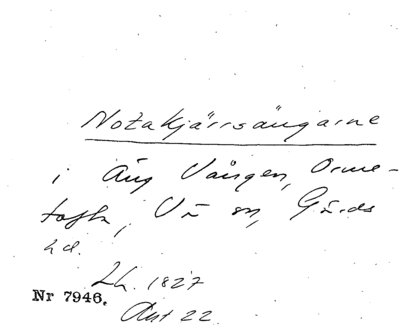 Notakjärrsängarne
i Äng Vången, Orme-
tofta, Vä sn, Gärds
hd.
Lh. 1827
Nr 7946.
Akt 22